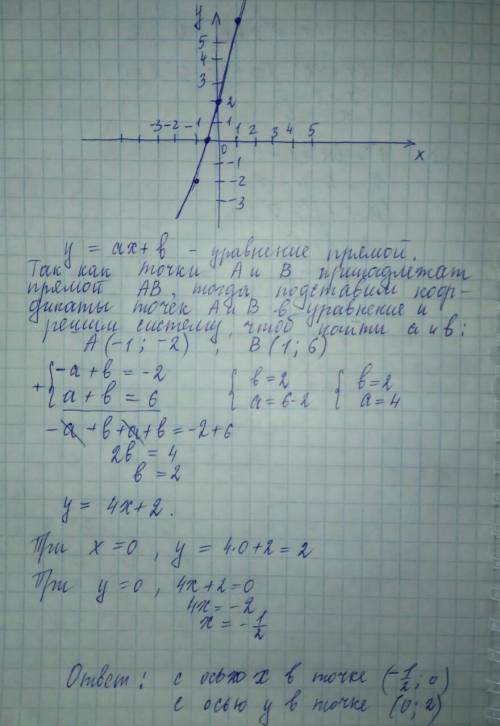 y
5
4
3
2
1
-3 -2 -1 0 1 2 3 4 5 x
-1
-2
-3
y = ax + b - уравнение прямой.
Так как точки A и B принадлежат
прямой AB, тогда подставим коор-
динаты точек A и B в уравнение и
решим систему, чтоб найти a и b:
A (-1; -2) , B (1; 6)
+ { -a + b = -2
a + b = 6
{ b = 2
a = 6-2
{ b = 2
a = 4
-a + b + a + b = -2 + 6
2b = 4
b = 2
y = 4x + 2.
При x = 0 , y = 4·0 + 2 = 2
При y = 0 , 4x + 2 = 0
4x = -2
x = -1/2
Ответ: с осью x в точке (-1/2; 0)
с осью y в точке (0; 2)